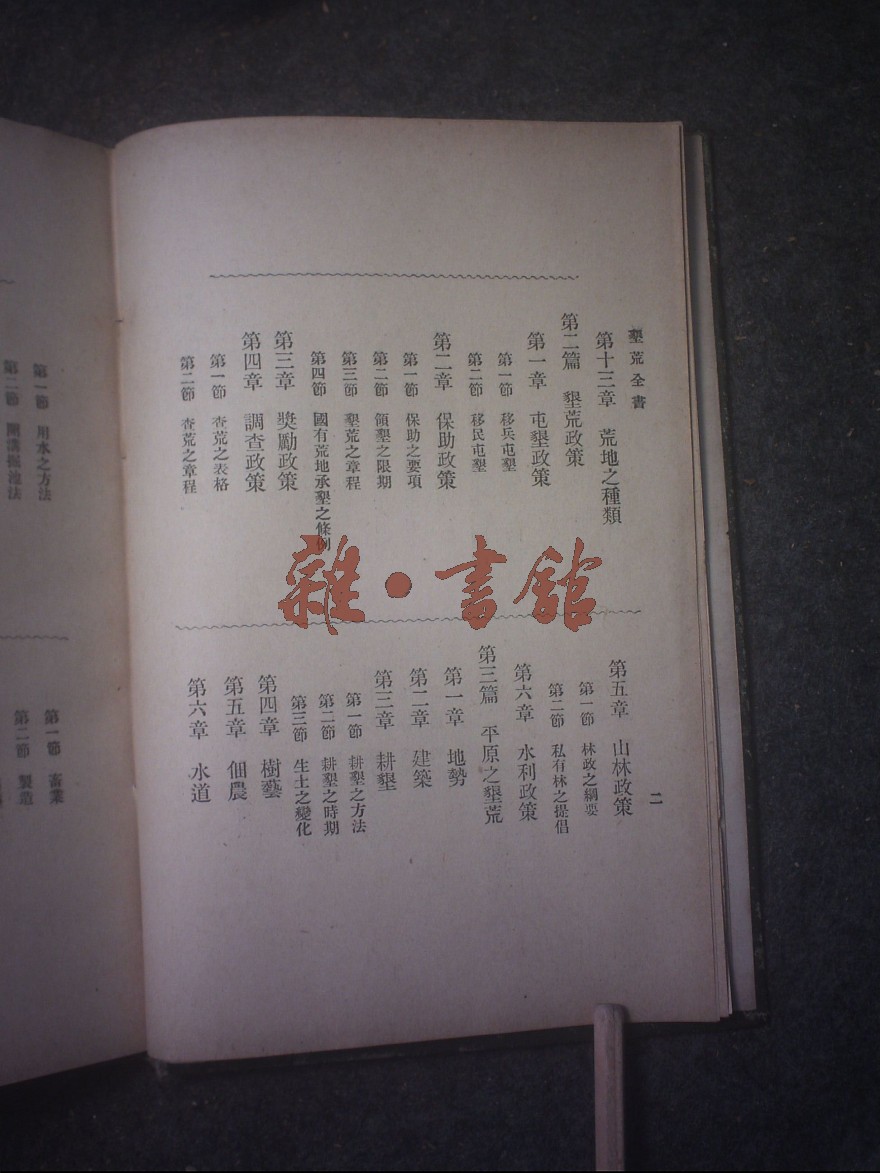 墾荒全書
第十三章　荒地之種類
第二篇　墾荒政策
第一章　屯墾政策
第一節　移兵屯墾
第二節　移民屯墾
第二章　保助政策
第一節　保助之要項
第二節　領墾之限期
第三節　墾荒之章程
第四節　國有荒地承墾之條例
第三章　獎勵政策
第四章　調查政策
第一節　查荒之表格
第二節　查荒之章程
二
第五章　山林政策
第一節　林政之綱要
第二節　私有林之提倡
第六章　水利政策
第三篇　平原之墾荒
第一章　地勢
第二章　建築
第三章　耕墾
第一節　耕墾之方法
第二節　耕墾之時期
第三節　生土之變化
第四章　樹藝
第五章　佃農
第六章　水道
第一節　用水之方法
第二節　開溝掘池法
第一節　畜業
第二節　製造
雜·書館